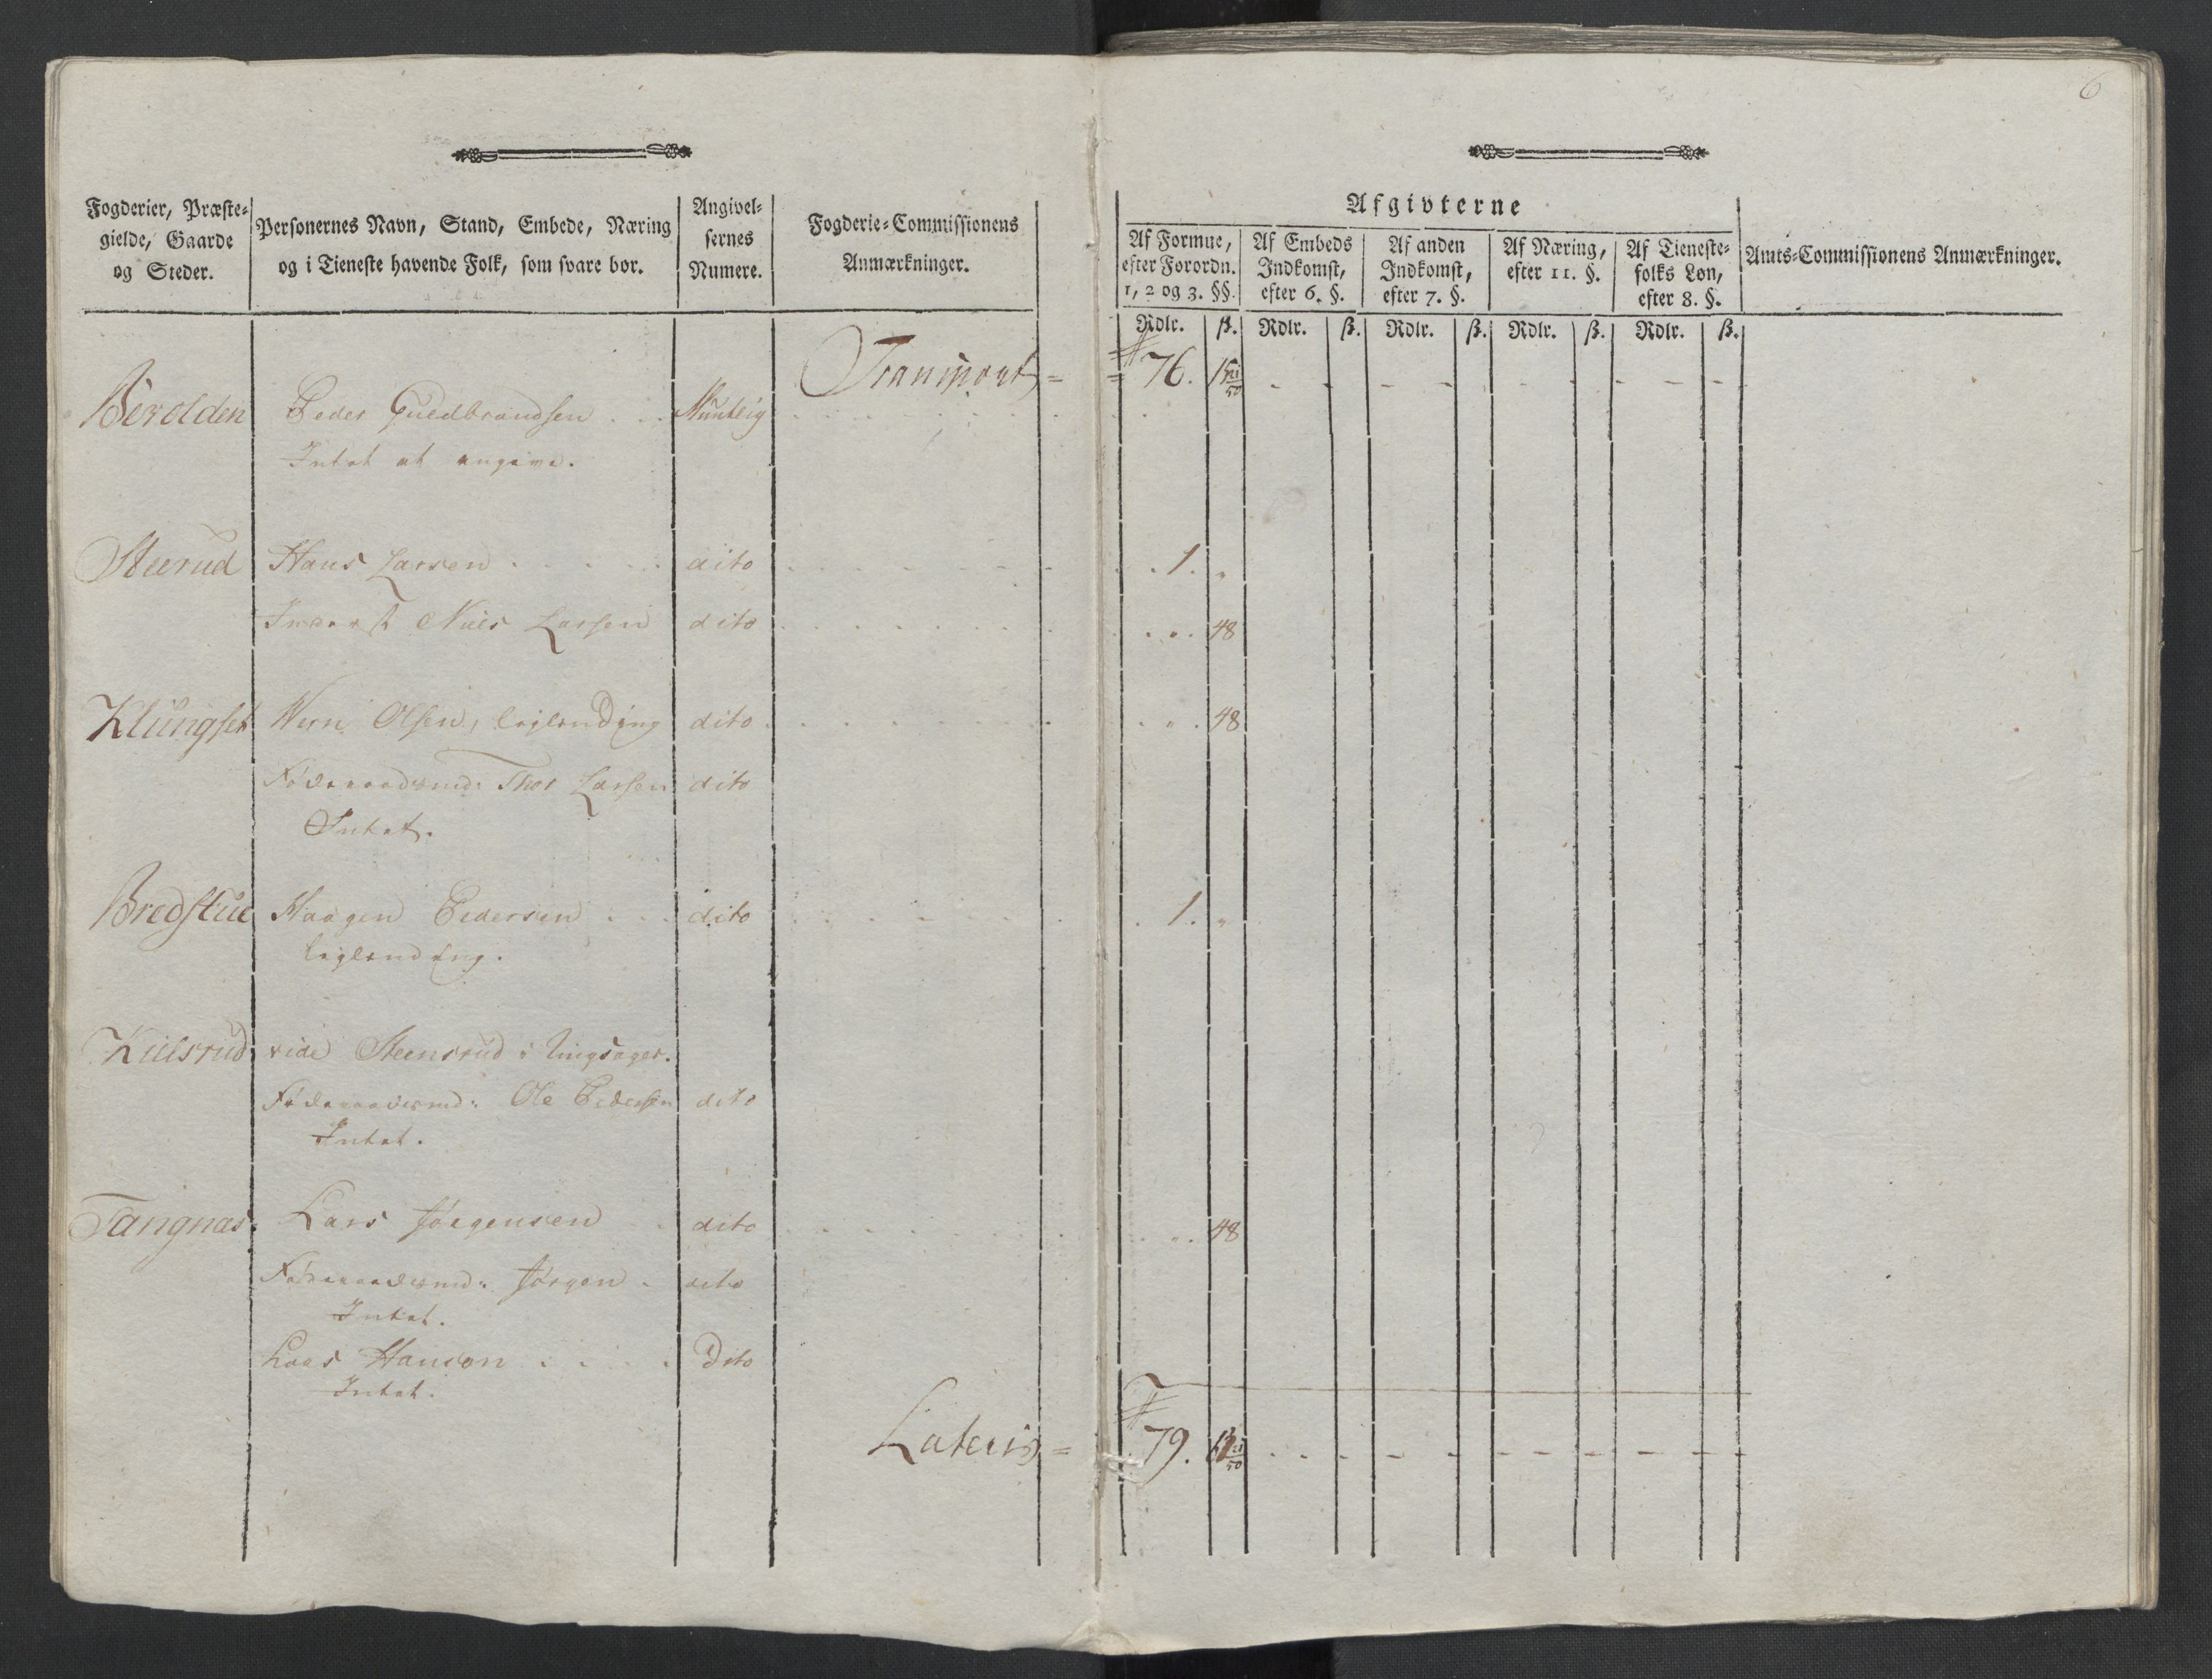 6
Fogderier, Præste-
gielde, Gaarde
og Steder.
Personernes Navn, Stand, Embede, Næring
og i Tieneste havende Folk, som svare bør.
Angivel-
sernes
Numere.
Fogderie-Commissionens
Anmærkninger.
Afgivterne
Af Formue,
efter Forordn.
1, 2 og 3. §§.
Af Embeds
Indkomst,
efter 6. §.
Af anden
Indkomst,
efter 7. §.
Af Næring,
efter 11. §.
Af Tieneste-
folks Løn,
efter 8. §.
Amts-Commissionens Anmærkninger.
Rdlr. ß. Rdlr. ß. Rdlr. ß. Rdlr. ß. Rdlr. ß.
Transport = 76.
Berolden Peder Guldbrandsen Muntlig
Intet at angive.
Steerud Hans Larsen dito 1. "
Inderst Niels Larsen dito " 48
Klüngset Olsen, Leylending dito " 48
Föderaadsmd: Thor Larsen dito
Intet.
Bredstue Haagen Pedersen dito 1. "
Leylending.
Kulsrud vide Steensrud i Ringsager.
Föderaadsmd: Ole Pedersen dito
Intet.
Tangnas: Lars Jörgensen dito " 48
Föderaadsmd: Jörgen dito
Intet.
Lars Hansen Dito
Intet.
Lateris = 79.